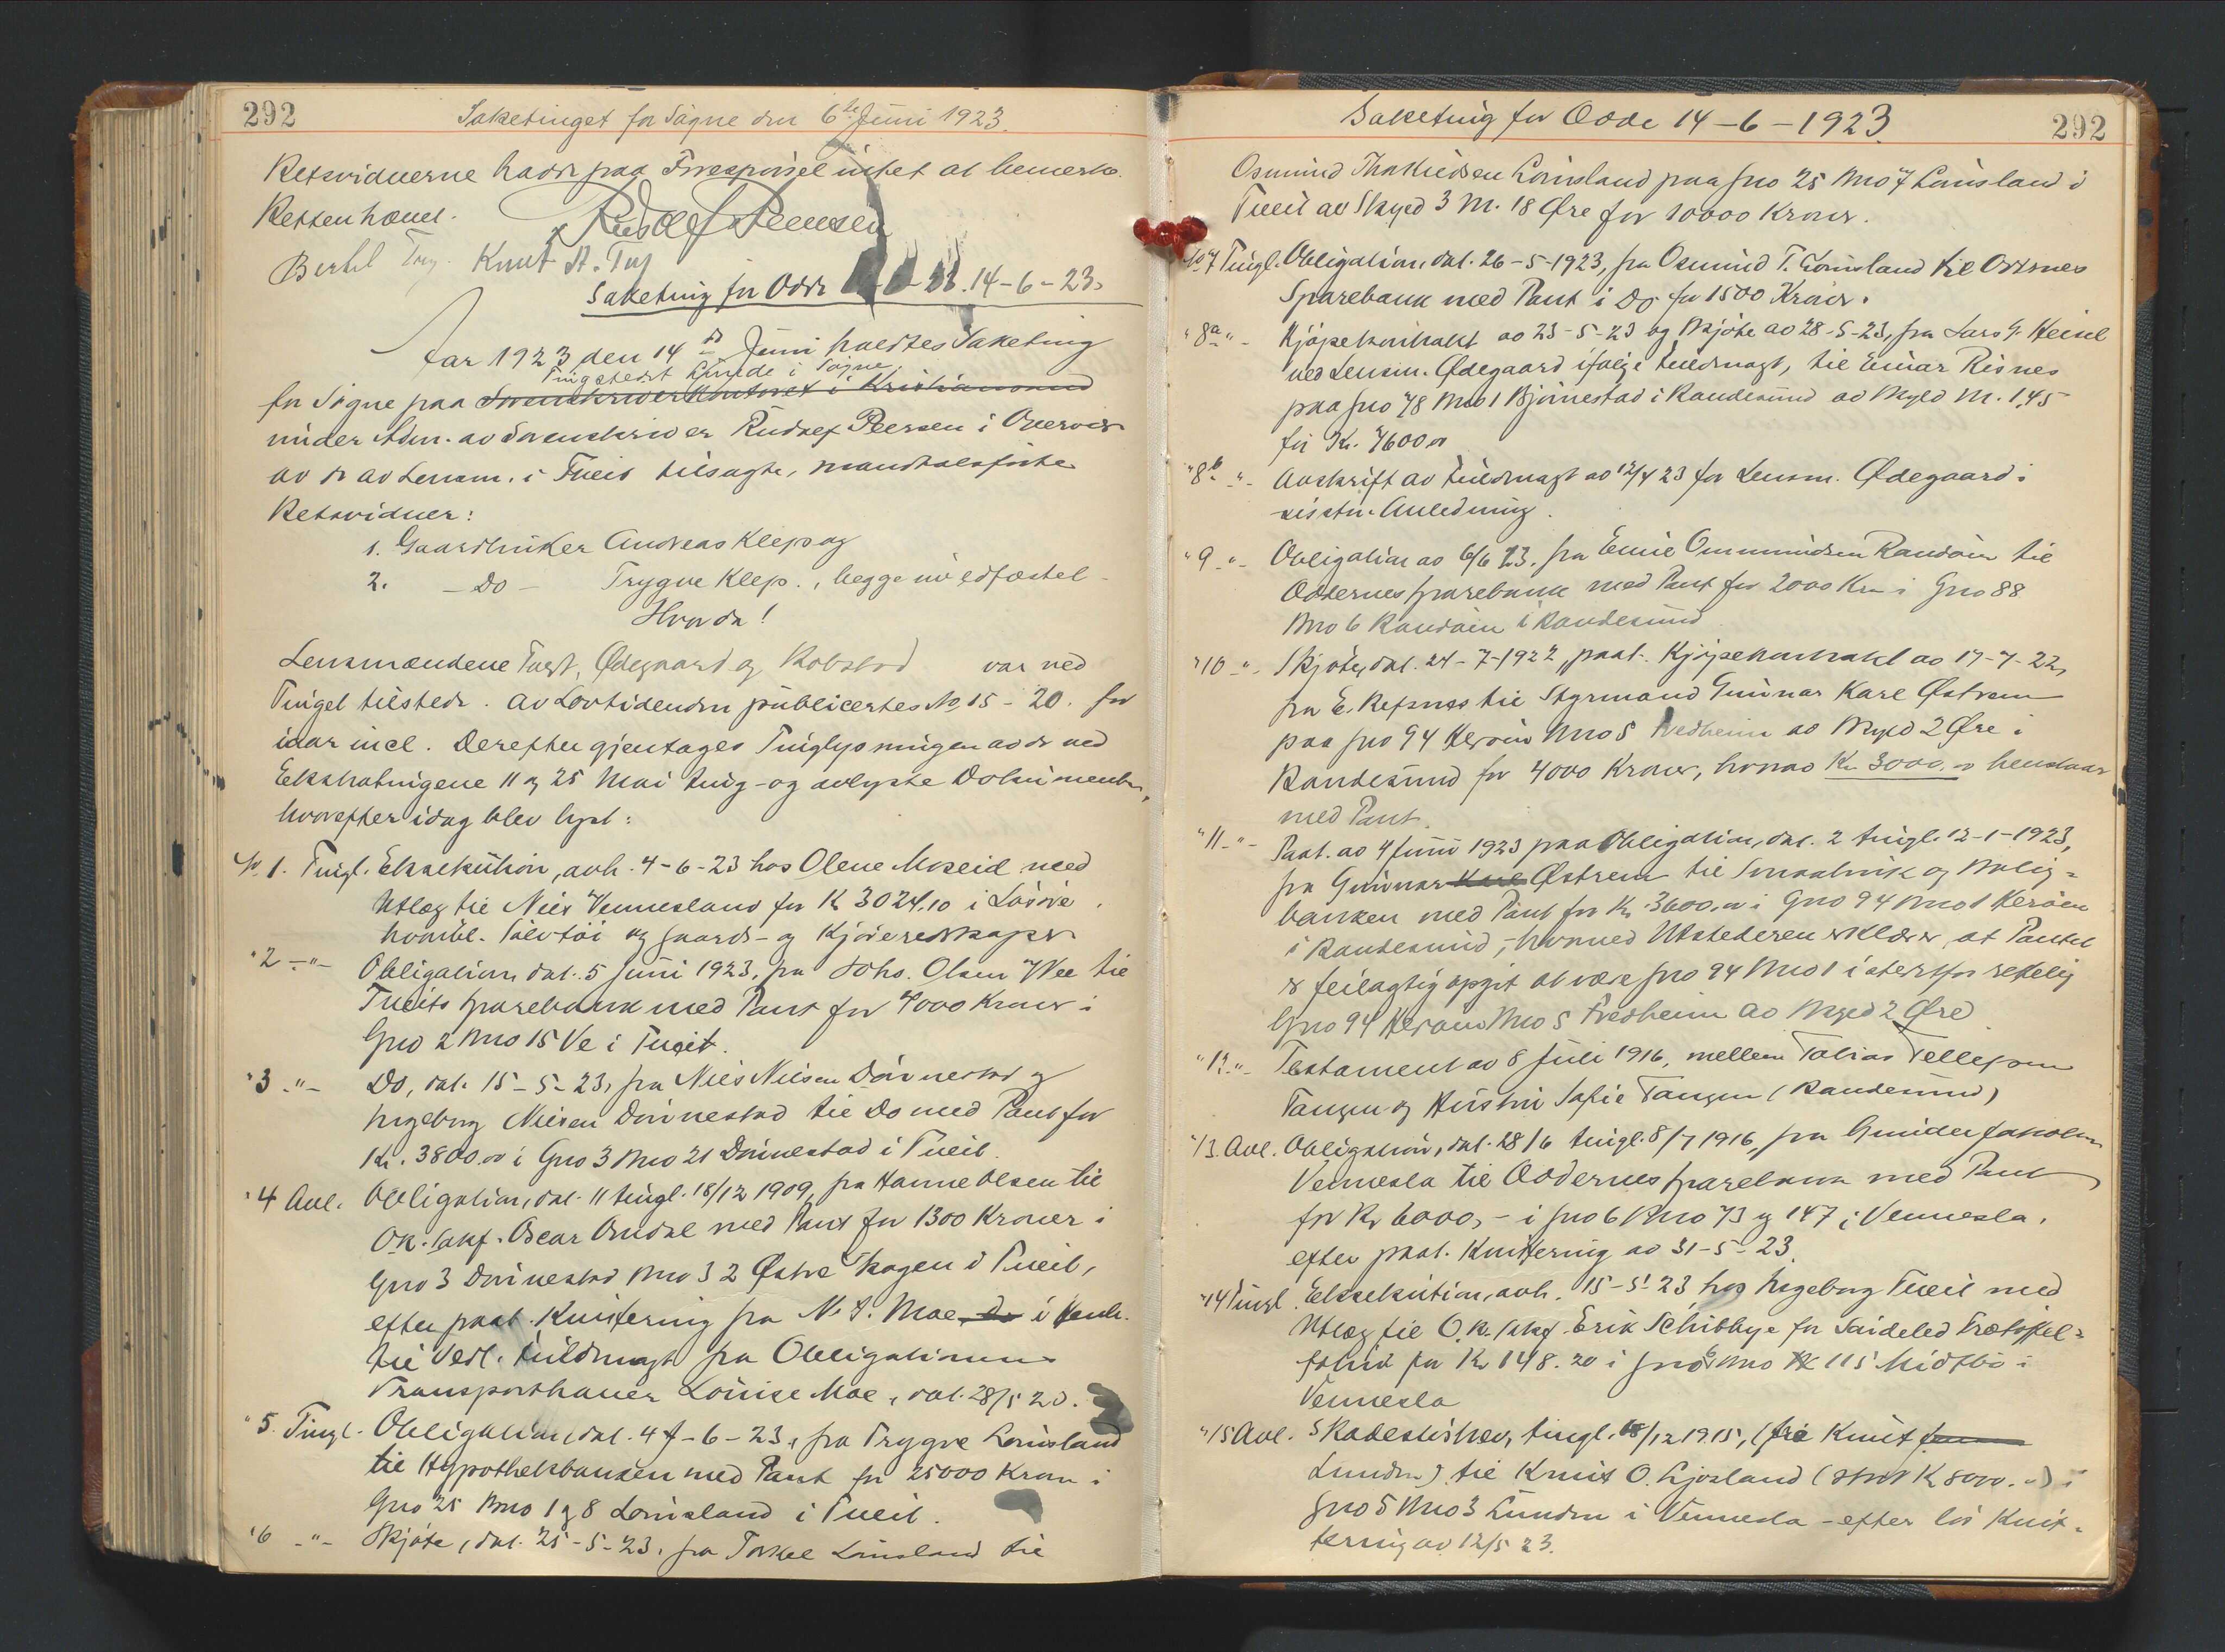 292
Saketinget for Søgne den 6te Juni 1923.
Retsvidnerne hadde paa Forespørsel intet at bemerke.
Retten hævet.
Rudolf Peersen
Bertil Tag. Knut A. Tag
Saketing for Odde 14-6-23.
Aar 1923 den 14de Juni holdtes Saketing
Tingstedet Lunde i Søgne
for Søgne paa Sorenskriverkontoret i Kristianssand
under Adm. av Sorenskriver Rudolf Peersen i Overvær
av de av Lensm. i Tveit tilsagte, mandtalsførte
Retsvidner:
1. Gaardbruker Andreas Klep og
2. -Do- Trygve Klep, begge nu edfæstet.
Hvorda!
Lensmændene Ødegaard og Robstad var ved
Tinget tilstede. Av Lovtidenden publicertes No 15-20. for
iaar incl. Derefter gjentages Tinglysningen av de ved
Ekstratingene 11 og 25 Mai ting- og avlyste Dokumenter,
hvorefter idag blev lyst:
No 1. Tingl. Eksekution, avh. 4-6-23 hos Olene Moseid med
Utlæg til Niels Vennesland for K 3024,10 i Løsøre
hvoribl. Sølvtøi og gaards- og Kjøreredskaper
"2 -"- Obligation, dat. 5 Juni 1923, fra Johs. Olsen Ve til
Tveits Sparebank med Pant for 4000 Kroner i
Gno 2 Bno 15 Ve i Tveit.
"3 -"- Do, dat. 15-5-23, fra Niels Nielsen Dønnestad og
Ingeborg Nielsen Dønnestad til Do med Pant for
Kr. 3800.00 i Gno 3 Bno 21 Dønnestad i Tveit.
"4 Avl. Obligation, dat. 11 tingl. 18/12 1909, fra Hanne Olsen til
O.R.sakf. Oscar Omdal med Pant for 1300 Kroner i
Gno 3 Dønnestad Bno 32 Østre Skogen i Tveit,
efter paat. Kvittering fra N. A. Moe, do i Henh.
til vedl. Fuldmagt fra Obligationens
Transporthaver Louise Moe, dat. 28/5 20.
"5. Tingl. Obligation, dat. 4-6-23, fra Trygve Lømsland
til Hypothekbanken med Pant for 25000 Kroner i
Gno 25 Bno 1 og 8 Lømsland i Tveit.
"6 -"- Skjøte, dat. 25-5-23, fra Torkel Lømsland til
Saketing for Odde 14-6-1923
292
Osmund Lømsland paa Gno 25 Bno 7 Lømsland i
Tveit av Skyld 3 M. 18 Øre for 10000 Kroner.
No 7 Tingl. Obligation, dat. 26-5-1923, fra Osmund T. Lømsland til Oddernes
Sparebank med Pant i Do for 1500 Kroner.
"8a -"- Kjøpekontrakt av 23-5-23 og Skjøte av 28-5-23, fra Lars G.
ved Lensm. Ødegaard ifølge Fuldmagt, til Einar Risnes
paa Gno 78 Bno 1 Bjørnestad i Randesund av Skyld M. 1,45
for Kr. 7600.00
"8b -"- Avskrift av Fuldmagt av 12/4 23 for Lensm. Ødegaard i
sidstn. Anledning.
"9 -"- Obligation av 6/6 23, fra Emil Ommundsen Randøen til
Oddernes Sparebank med Pant for 2000 Kr. i Gno 88
Bno 6 Randøen i Randesund
"10 -"- Skjøte, dat. 24-7-1922, paat. Kjøpekontrakt av 17-7-22,
fra E. Refsnes til Styrmand Gunnar Karl Østrem
paa Gno 94 Kerøen Bno 5 Fredheim av Skyld 2 Øre i
Randesund for 4000 Kroner, hvorav Kr. 3000.00 henstaar
med Pant.
"11 -"- Paat. av 4 Juni 1923 paa Obligation, dat. 2 tingl. 12-1-1923,
fra Gunnar Karl Østrem til Smaabruk og Bolig-
banken med Pant for Kr. 3600.00 i Gno 94 Bno 1 Kerøen
i Randesund, - hvorved Utstederen erklærer, at Pantet
er feilagtig opgit at være Gno 94 Bno 1 istedetfor rettelig
Gno 94 Kerøen Bno 5 Fredheim av Skyld 2 Øre.
"12 -"- Testament av 8 Juli 1916, mellem Tobias Tellefsen
Tangen og Hustru Sofie Tangen (Randesund)
"13. Avl. Obligation, dat. 28/6 tingl. 8/7 1916, fra Gunder Jakobsen
Vennesla til Oddernes Sparebank med Pant
for Kr 6000,- i Gno 6 Bno 73 og 147 i Vennesla,
efter paat. Kvittering av 31-5-23.
"14 Tingl. Eksekution, avh. 15-5-23 hos Ingeborg Tveit med
Utlæg til O.R.sakf. Erik Schibbye for Trætte
for Kr 148.20 i Gno 6 Bno 115 Midtbø i
Vennesla
"15 Avl. Skadesløsbrev, tingl. 18/12 1915, (fra Knut
Lunden) til Knut O. Ljosland (stort K 8000.00) i
Gno 5 Bno 3 Lunden i Vennesla - efter løs Kvit-
tering av 12/5 23.